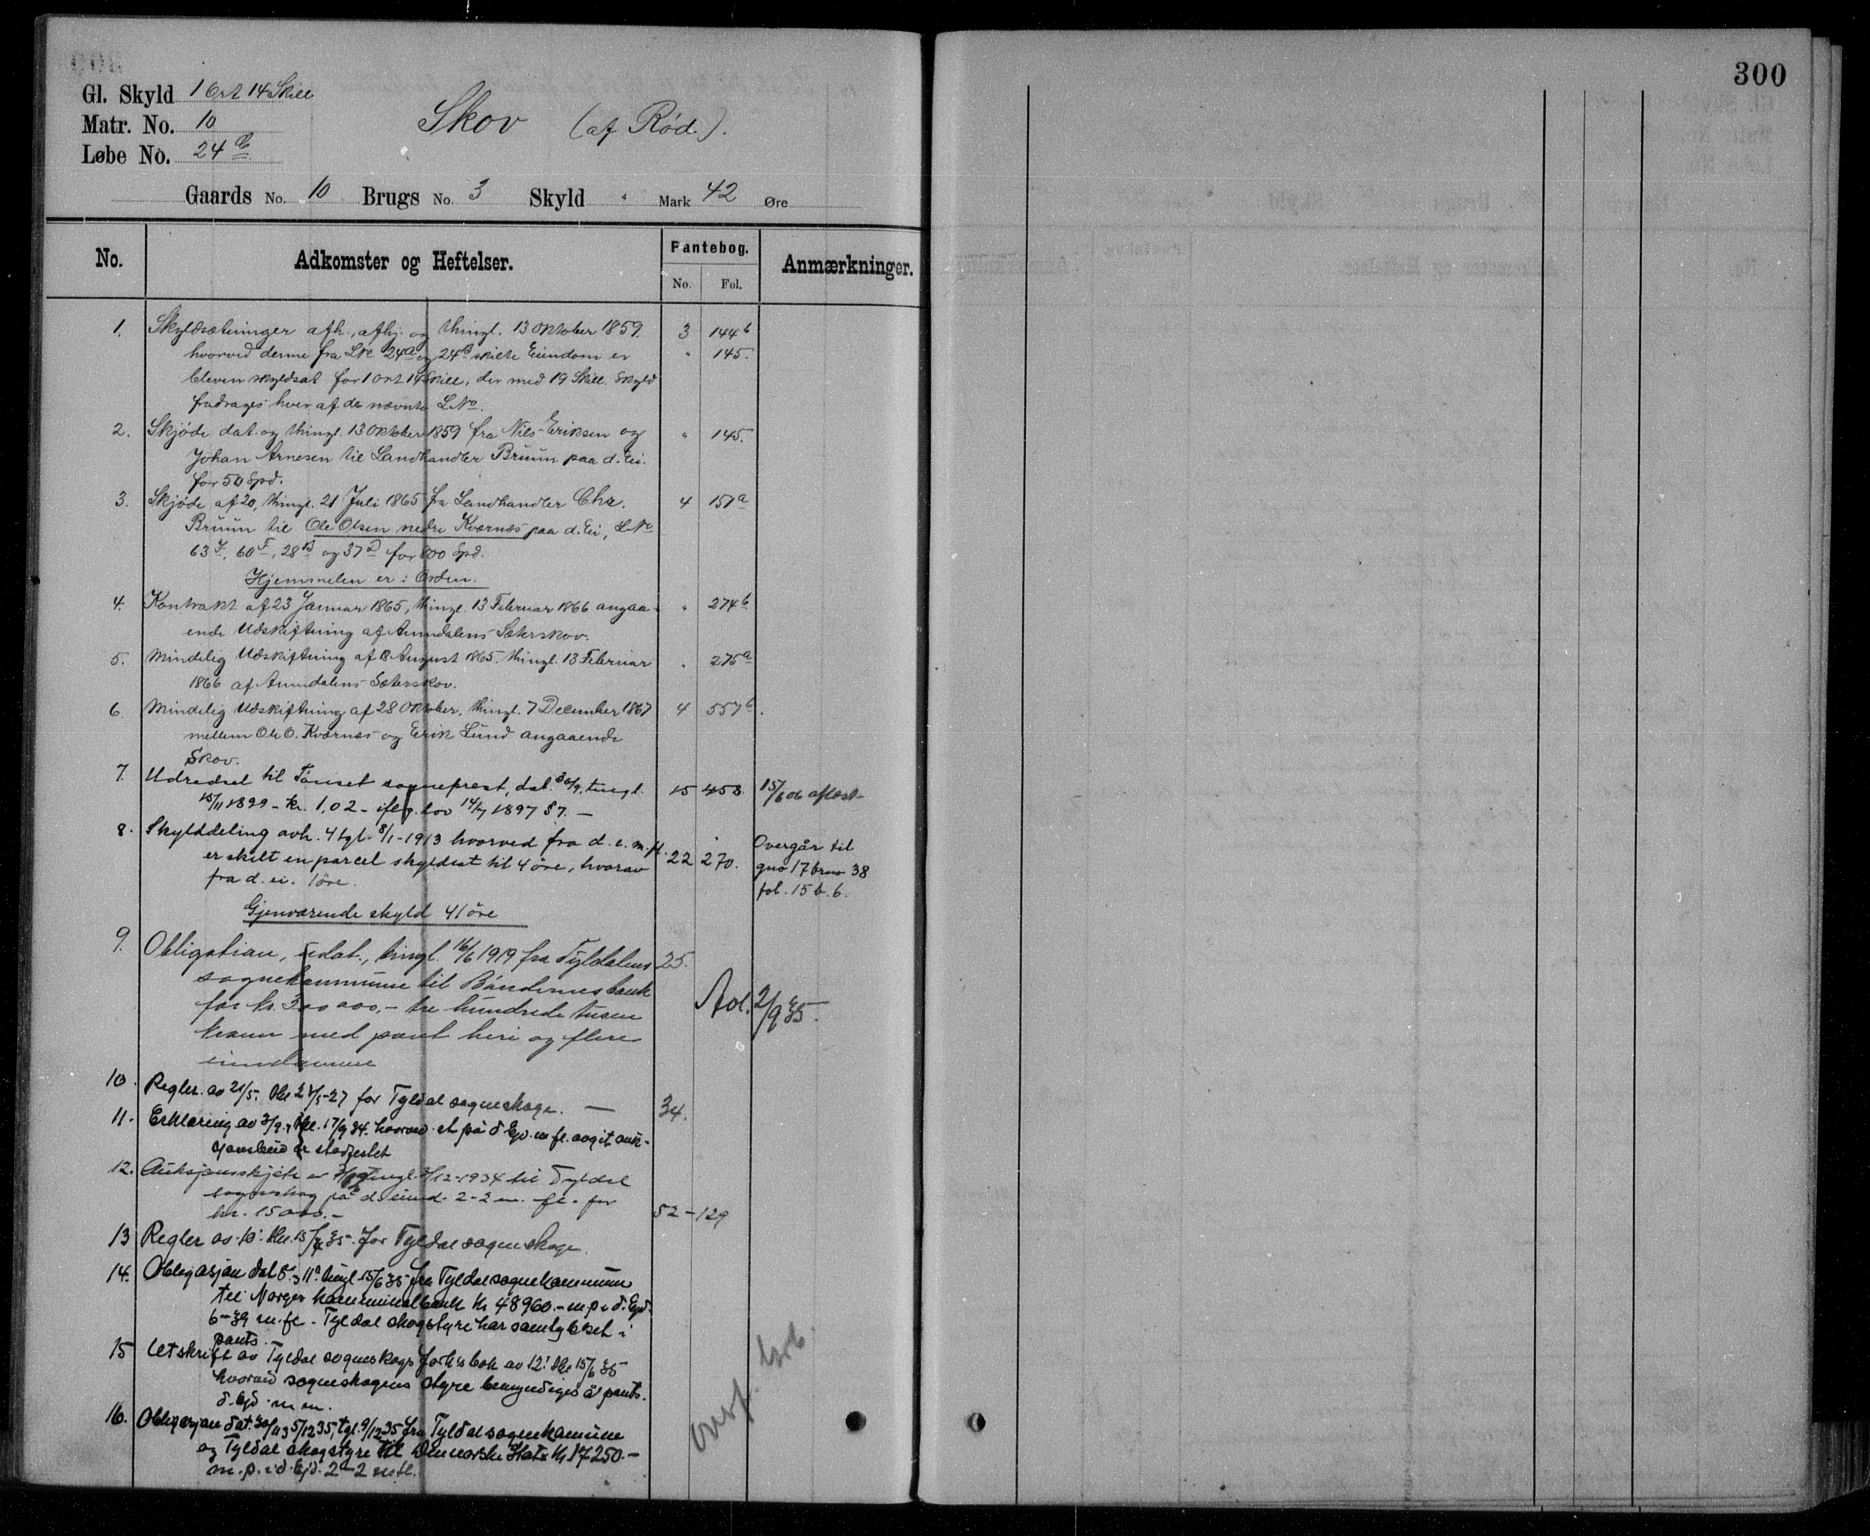 300
Gl. Skyld 1 Ort 14 Skill
Matr. No. 10
Løbe No. 24 C
Skov (af Rød.).
Gaards No. 10 Brugs No. 3 Skyld " Mark 42 Øre
No. Adkomster og Heftelser. Pantebog. No. Fol. Anmærkninger.
1. Skyldsætninger afh., afhj. og thingl. 13 Oktober 1859. 3 144 b
hvorved denne fra LNo 24a og 24B skilte Eiendom er " 145.
bleven skyldsat for 1 ort 14 Skill, der med 19 Skill. Skyld
fradrages hver af de nævnte LNo.
2. Skjøde dat. og thingl. 13 Oktober 1859 fra Nils Eriksen og " 145.
Johan Arnesen til Landhandler Bruun paa d. Ei.
for 50 Spd.
3. Skjøde af 20, thingl. 21 Juli 1865 fra Landhandler Chr. 4 151 a
Bruun til Ole Olsen nedre Kværnæs paa d. Ei, LNo
63, 60 F, 28 B og 37 D for 800 Spd.
Hjemmelen er i Orden.
4. Kontrakt af 23 Januar 1865, thingl. 13 Februar 1866 angaa- " 274 b
ende Udskiftning af Anndalens Sæterskov.
5. Mindelig Udskiftning af 18 August 1865. thingl. 13 Februar " 275 a
1866 af Anndalens Sæterskov.
6. Mindelig Udskiftning af 28 Oktober, thingl. 7 December 1867 4 557 b
mellem Ole O. Kværnæs og Erik Lund angaaende
Skov.
7. Udredsel til Tønset sogneprest, dat. 30/9, tingl. 15 458 15/6 06 aflæst-
15/11 1899 - kr. 1,02 - iflg. lov 14/7 1897 § 7. -
8. Skylddeling avh. 4 tgl. 8/1-1913 hvorved fra d. e. m. fl. 22 270. Overgår til
er skilt en parcel skyldsat til 4 øre, hvorav gno 17 brno 38
fra d. ei. 1 øre. fol. 15 b. 6.
Gjenværende skyld 41 øre
9. Obligation, udat., tingl. 16/6 1919 fra Tyldalens 25.
sognekommune til Bøndernes bank
for kr. 300 000,- tre hundrede tusen Avl. 2/9 35.
kroner med pant heri og flere
eiendomme
10. Regler av 21/5. tkl 24/5-27 for Tyldal sogneskoge. - 34.
11. Erklæring av 3/9, tkl. 17/9 34. hvorved et på d. Ejd. m fl. avgit auk-
sjonsbud er stadfestet
12. Auksjonsskjøte av tingl. /12-1934 til Tyldal
sogneskog på d. eiend. 2-2 m. fl. for
kr. 15000.- 52-129
13 Regler av 10. tkl. 15/ 35. for Tyldal sogneskoge.
14. Obligasjon dat 8. 11. tingl 15/6 35 fra Tyldal sognekommune
til Norges kommunalbank kr 48960.- m. p. i d. Ejd.
6-39 m. fl. - Tyldal skogstyre har samtykket i
pants.
15 Utskrift av Tyldal sogneskogs forh.s bok av 12. tkl 15/6 35
hvorved sogneskogens styre bemyndiges å pants.
d. Ejd. m m.
16. Obligasjon dat. 30/11 35/12 35, tgl. 9/12 35 fra Tyldal sognekommune
og Tyldal skogstyre til Den norske Stat kr 17250.-
m. p. i d. Ejd. 2-2 m fl.